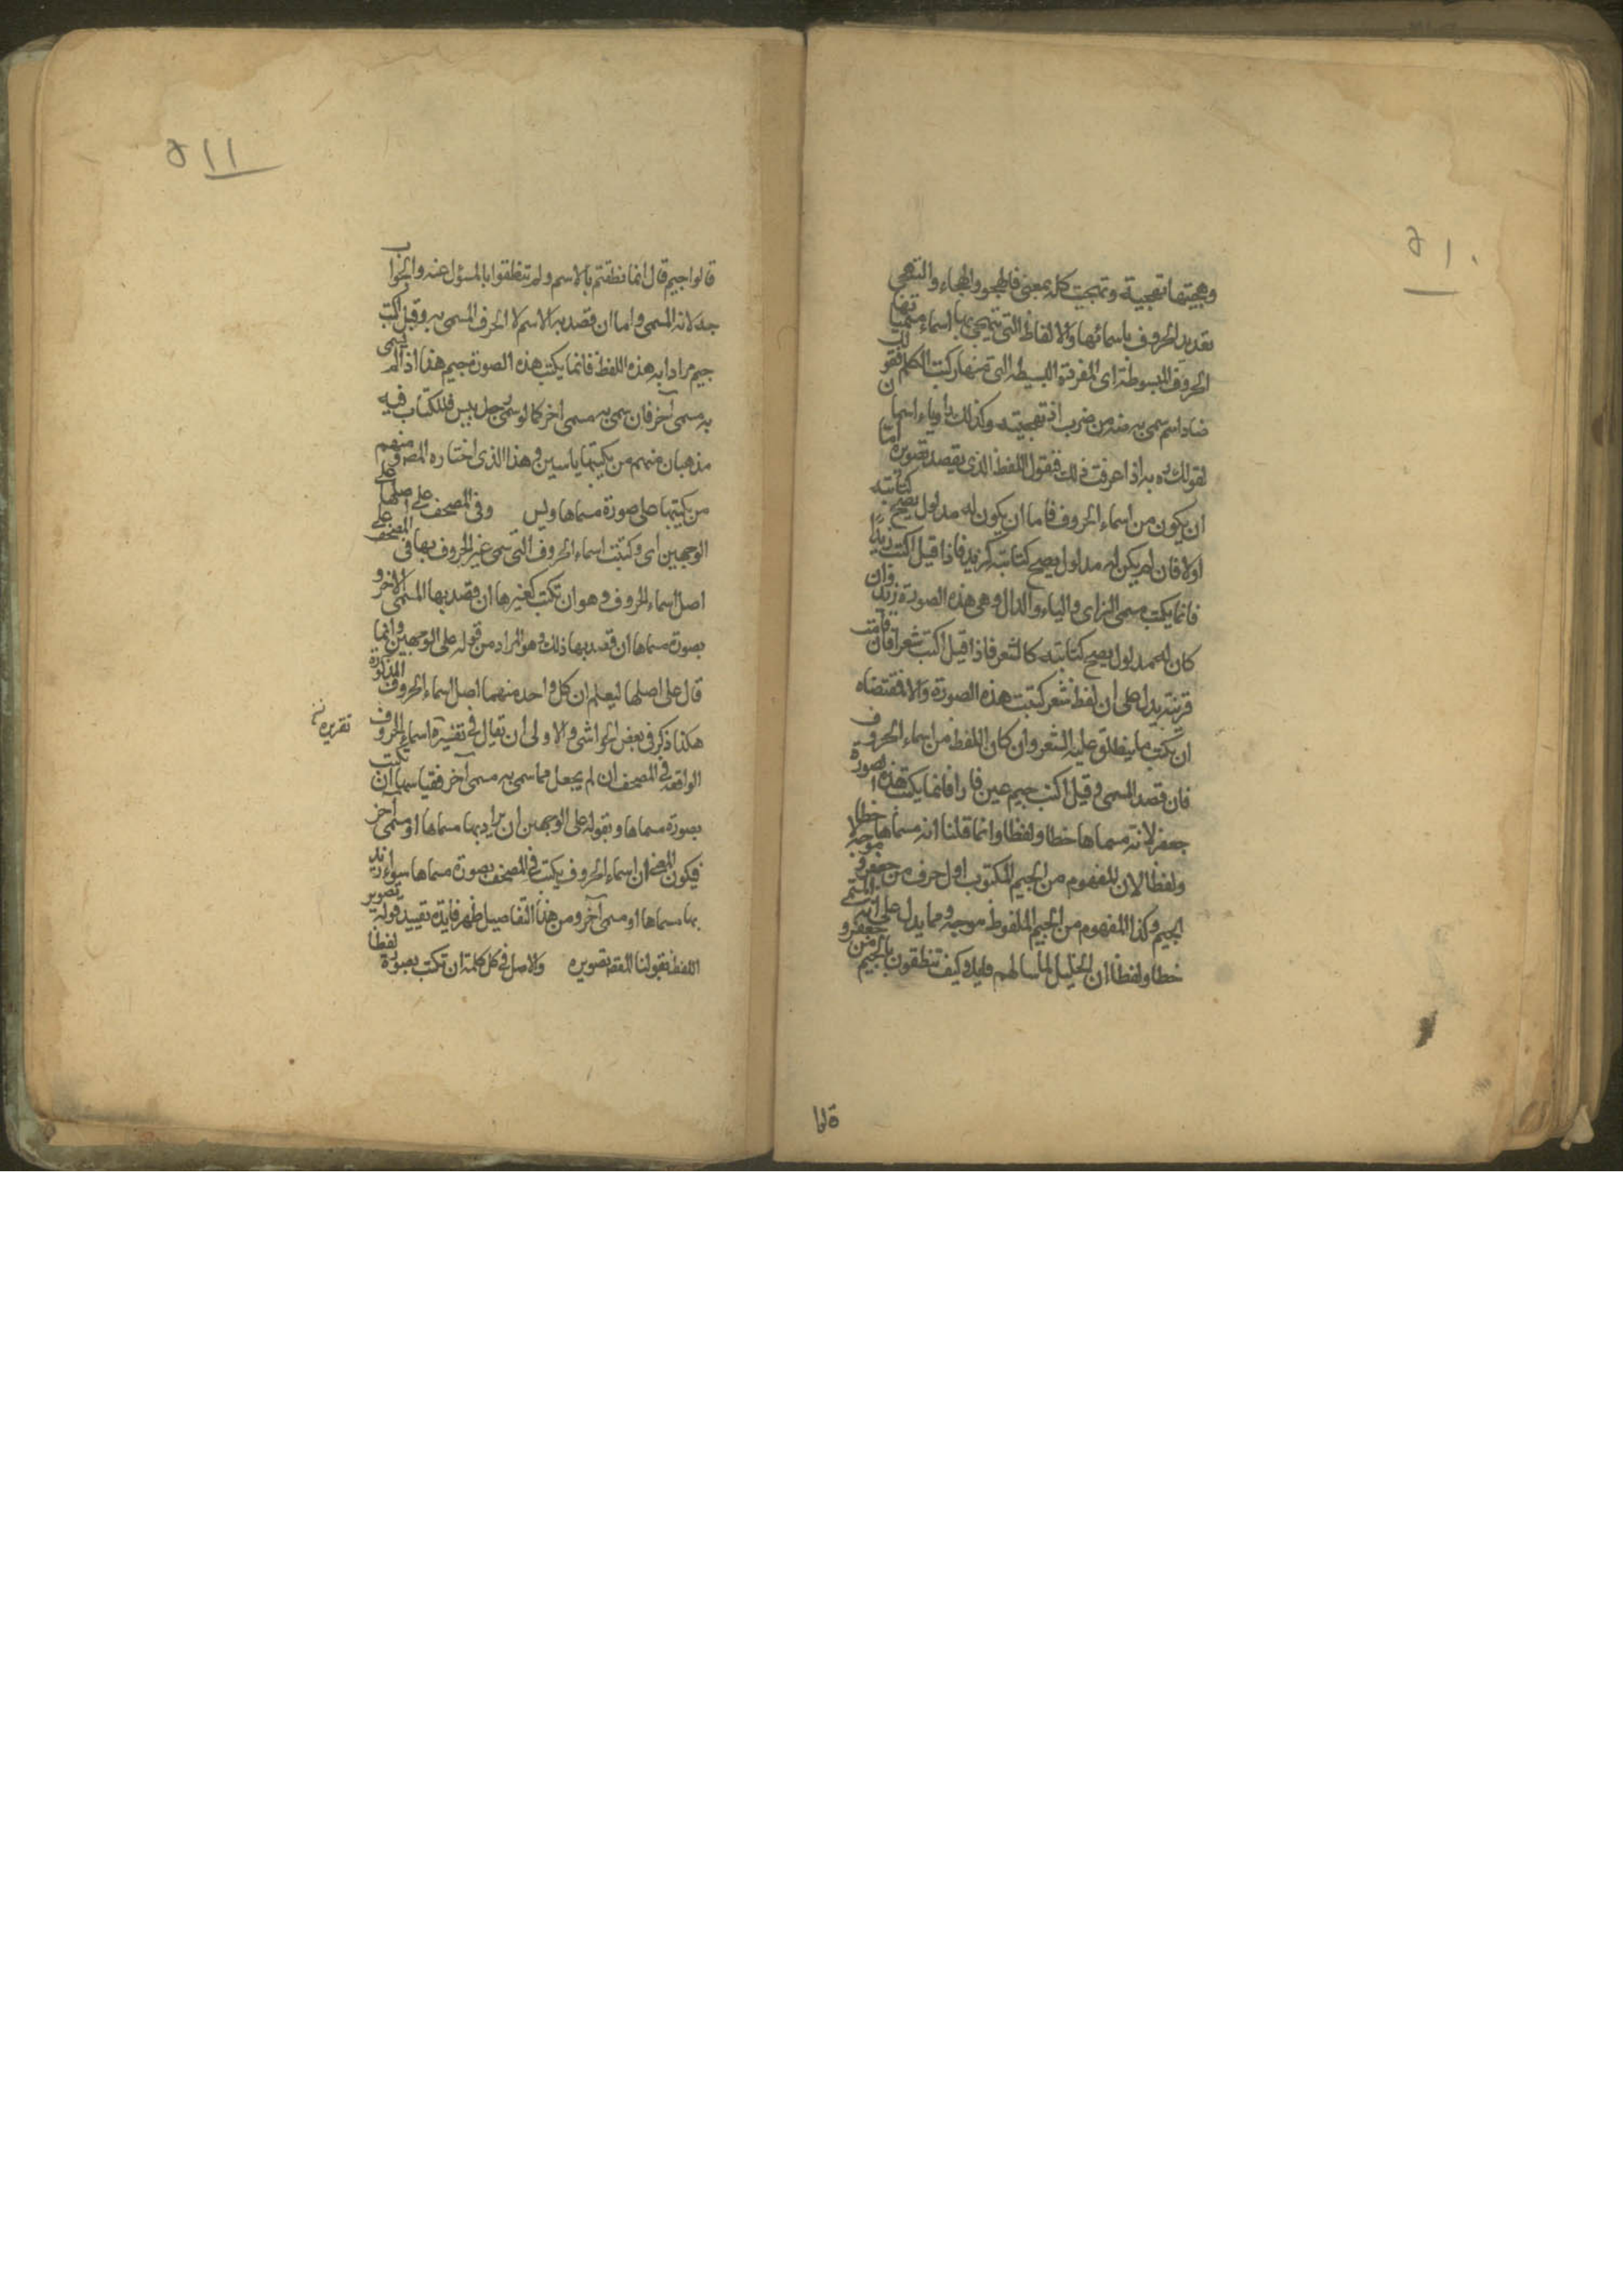 ٥١٠
وهجيتها تهجية وتهجيت كله بمعنى فالهجو والهجاء والتهجى
تعديد الحروف باسمائها والالفاظ التى يتهجى بها اسماء مسمياتها
الحروف المبسوطة اى المفردة البسيطة التى منها ركبت الكلم فقولك
ضاد اسم سمى به ضه من ضرب اذا تهجيته وكذلك را وباء اسمان
لقولك ره به اذا عرفت ذلك فنقول اللفظ الذى يقصد تصويره اما
ان يكون من اسماء الحروف فاما ان يكون له مدلول يصح كتابته
اولا فان لم يكن له مدلول يصح كتابته كزيد فاذا قيل اكتب زيدا
فانما يكتب مسمى الزاى والياء والدال وهى هذه الصورة زيد وان
كان له مدلول يصح كتابته كالشعر فاذا قيل اكتب شعرا فان قامت
قرينة يدل على ان لفظ شعر كتبت هذه الصورة والا فمقتضاه
ان يكتب ما ينطلق عليه الشعر وان كان اللفظ من اسماء الحروف
فان قصد المسمى وقيل اكتب جيم عين فا را فانما يكتب هذه الصورة
جعفر لانه مسماها خطا ولفظا وانما قلنا انه مسماها خطا
ولفظا لان المفهوم من الجيم المكتوب اول حرف من جعفر
الجيم وكذا المفهوم من الجيم الملفوظ وممايدل على انه المسمى
خطا ولفظا ان الخليل لما سالهم وقيل كيف تنطقون بالجيم من جعفر و
قالوا
٥١١
قالوا جيم قال انما نطقتم بالاسم ولم تنطقوا بالمسؤل عنه والجواب
جه لانه المسمى واما ان قصد به الاسم لا الحرف المسمى به وقيل اكتب
جيم مرادا به هذه اللفظ فانما يكتب هذه الصورة جيم هذا اذا لم يسمى
به مسمى آخر فان سمى به مسمى آخر كما لو سمى رجل بيس فللكتاب فيه
مذهبان منهم من يكتبها ياسين وهذا الذى اختاره المص ومنهم
من يكتبها على صورة مسماها وليس وفى المصحف على اصلها على
الوجهين اى وكتبت اسماء الحروف التى سمى غير الحروف بها فى المصحف على
اصل اسماء الحروف وهو ان تكتب كغيرها ان قصد بها المسمى الاخر و
بصورة مسماها ان قصد بها ذلك وهو المراد من قوله على الوجهين وانما
قال على اصلها ليعلم ان كل واحد منهما اصل اسماء الحروف المذكورة
هكذا ذكر فى بعض الحواشى والاولى ان يقال فى تفسيره اسماء الحروف
تقريره نخ
الواقعة فى المصحف ان لم يجعل مما سمى به مسمى آخر فقياسها ان تكتب
بصورة مسماها وبقوله على الوجهين ان يراد بها مسماها او مسمى آخر
فيكون المعنى ان اسماء الحروف يكتب فى المصحف بصورة مسماها سواء اريد
بها مسماها او مسمى آخر ومن هذا التفاصيل ظهر فايدة تقييد قوله تصوير
اللفظ بقولنا اللفظ بتصويره والاصل فى كل كلمة ان تكتب بصورة لفظا